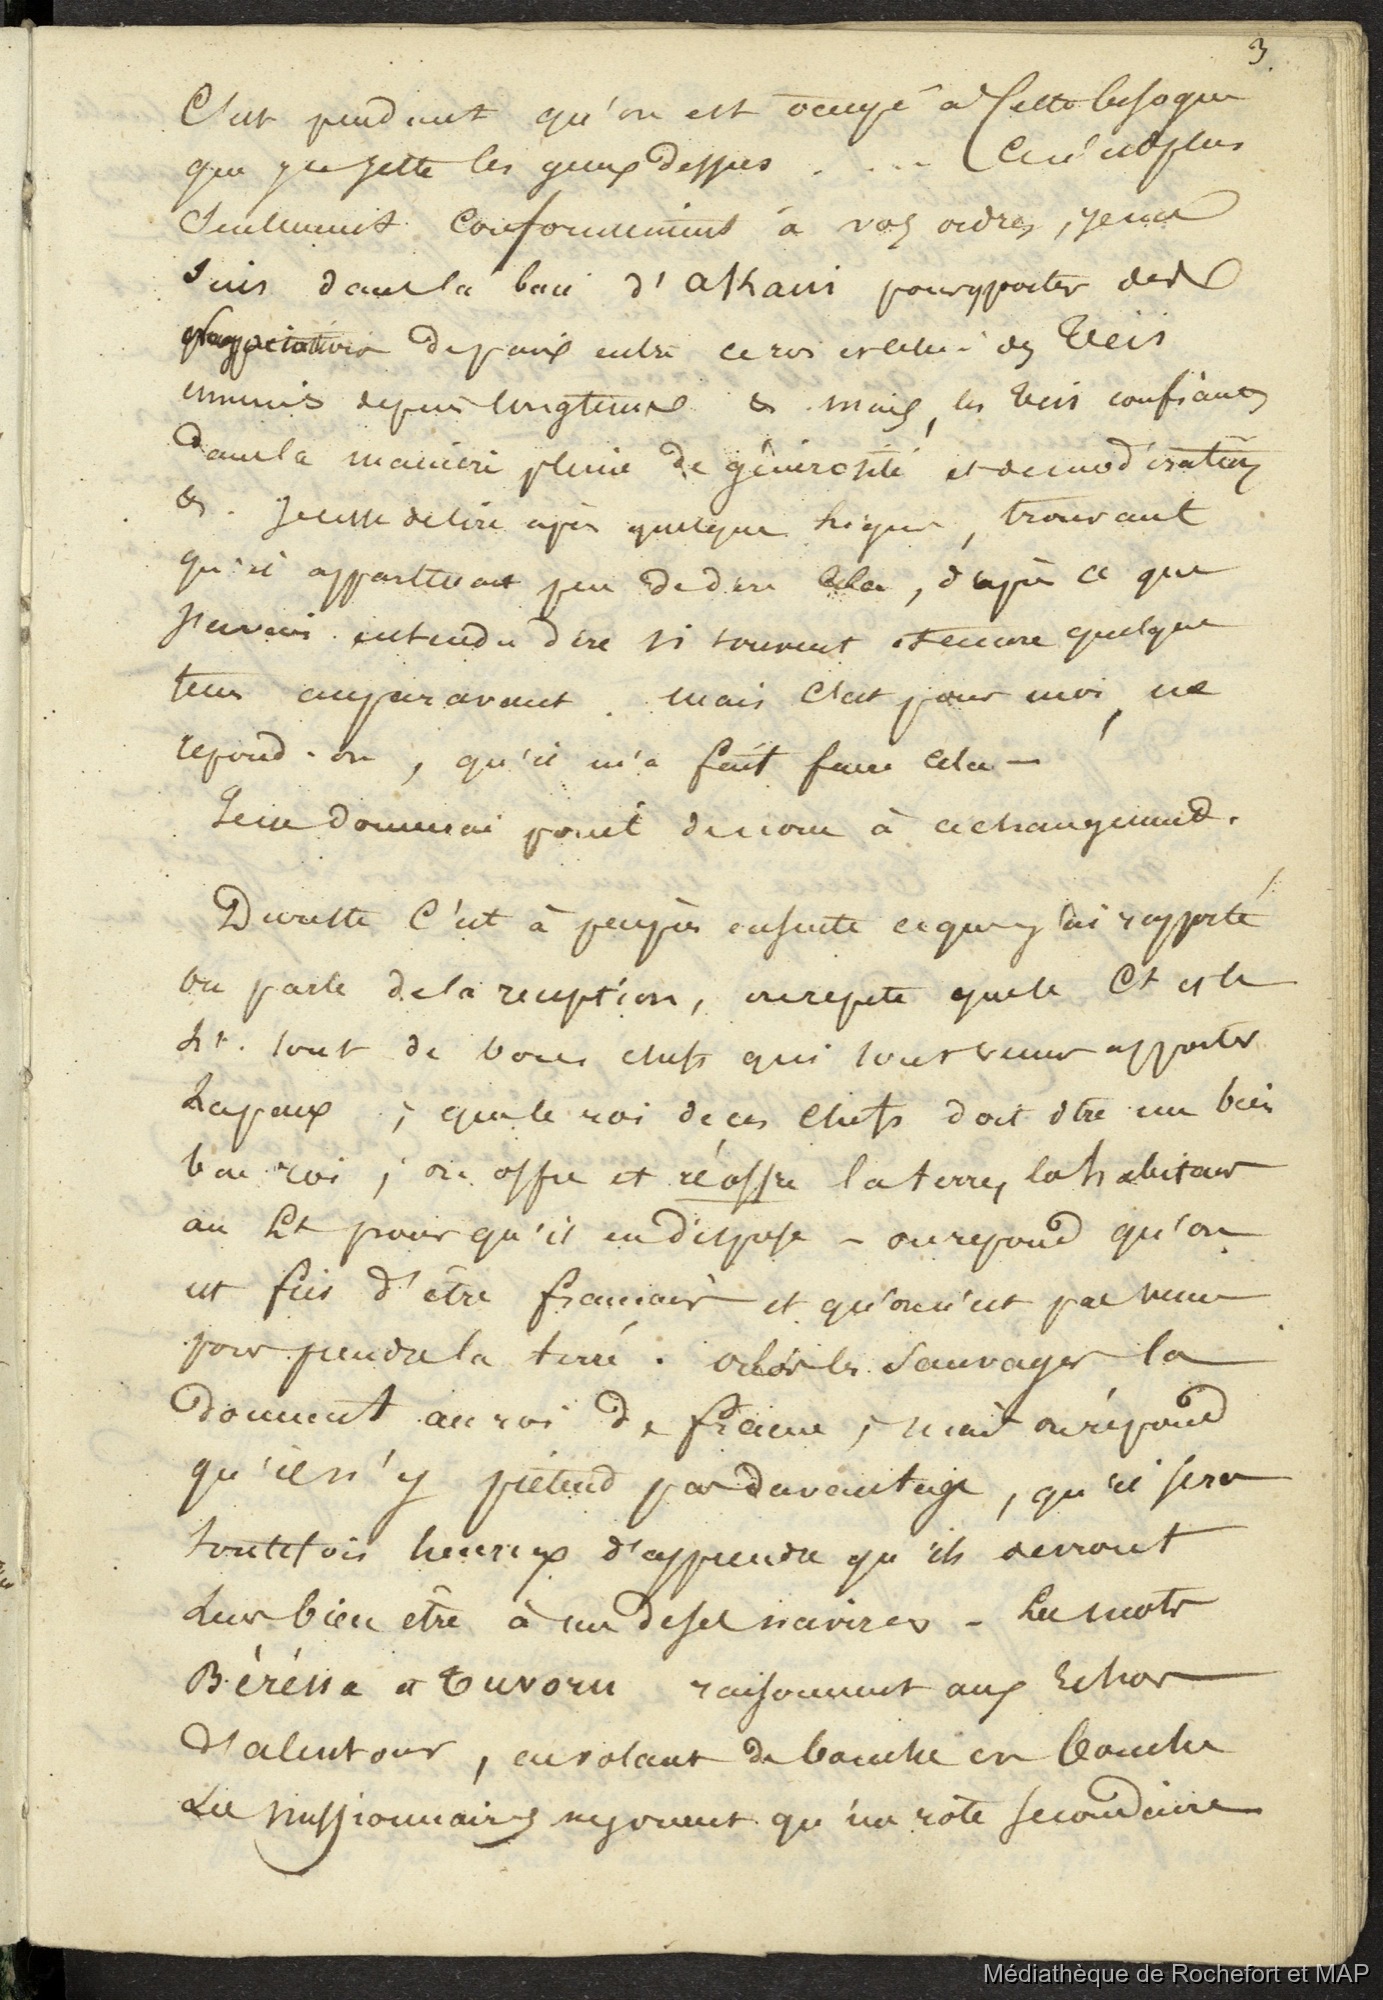 3.
C'est pendant qu'on est occupé à cette besogne
que je jette les yeux dessus . . . . Ce n'est plus
seulement conformement à vos ordres, je me
suis dans la baie d'akani pour y porter des
négociations de paix entre ce roi et celui des Teïs
ennemis depuis longtems & mais, les Teïs confiants
dans la manière pleine de générosité et de modération
&. Je cesse de lire après quelques lignes, trouvant
qu'il appartenait peu de dire cela, d'après ce que
j'avais entendu dire si souvent et encore quelque
tems auparavant. mais c'est pour moi, me
repond-on, qu'il m'a fait faire cela —
Je ne donnerai point de nom à ce changement.
Du reste c'est à peu près ensuite ce que j'ai rapporté
on parle de la reception, on repete que le Ct et le
Lt. sont de bons chefs qui sont venus apporter
la paix ; que le roi de ces chefs doit être un bien
bon roi ; on offre et réoffre la terre, les habitans
au Lt pour qu'il en dispose — on repond qu'on
est fier d'être français et qu'on n'est pas venu
pour prendre la terre. alors les sauvages la
donnent au roi de france ; mais on répond
qu'il n'y prétend pas davantage, qu'il sera
toutefois heureux d'apprendre qu'ils devront
leur bien être à un de ses navires — Les mots
Bérésse et Tuvoru raisonnent aux Echos
d'alentour, en volant de bouche en bouche
Les missionnaires ne jouent qu'un role secondaire
Médiathèque de Rochefort et MAP